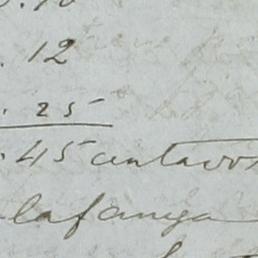 . 12
. 25
.45 centavos
la fanega